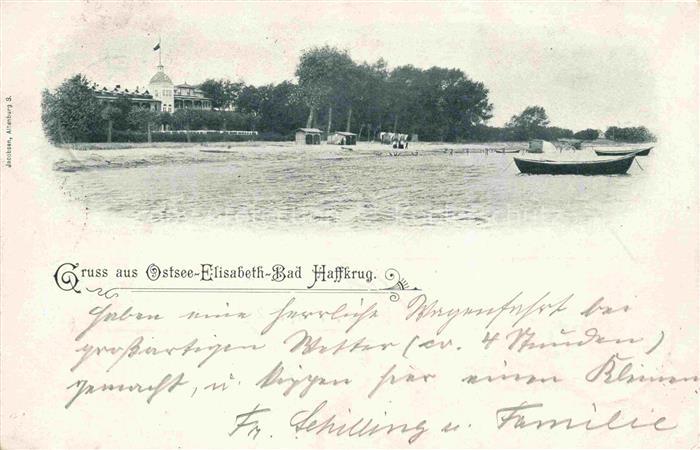 Jacobsen, Altenburg S.
Gruss aus Ostsee-Elisabeth-Bad Haffkrug.
Haben eine herrliche Wagenfahrt bei
großartigen Wetter (ca. 4 Stunden)
gemacht, u. kippen hier einen Kleinen
Fr. Schilling u. Familie